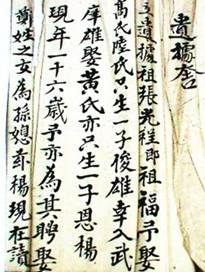 遺據書
立遺據祖張光程郎祖福予娶
高氏陸氏只生一子俊雄幸入武
庠雄娶黃氏亦只生一子恩楊
現年一十六歲予亦為其聘娶
黃姓之女為孫媳弟楊現在讀